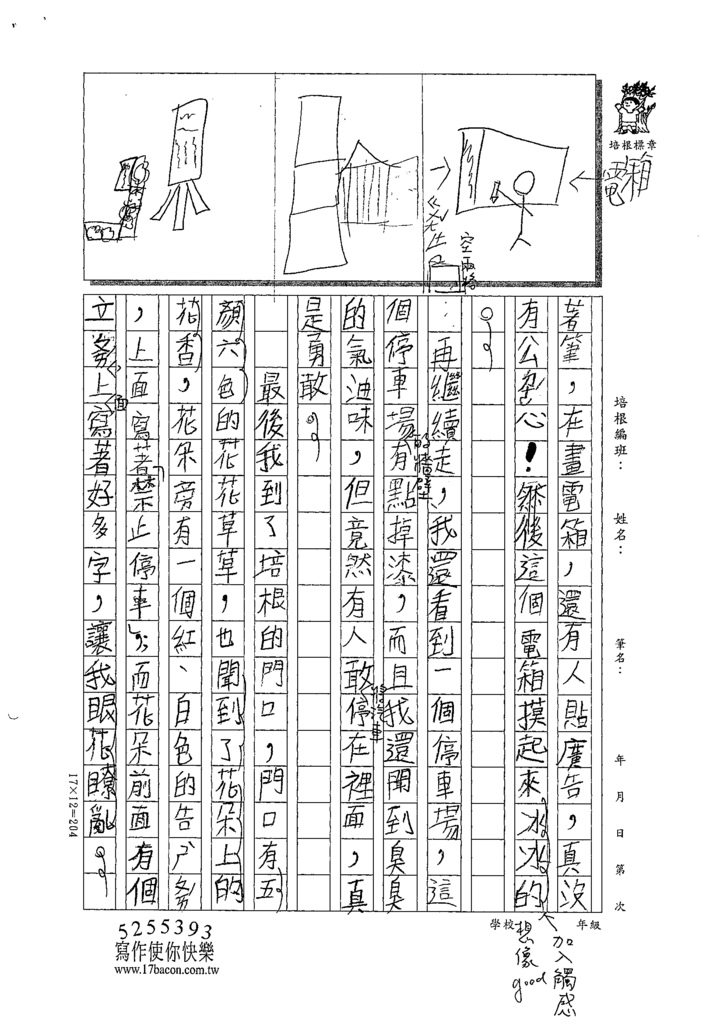 培根標章
電箱
空兩格
著筆，在畫電箱，還有人貼廣告，真沒
有公德心！然後這個電箱摸起來冰冰的
。
再繼續走，我還看到一個停車場，這
個停車場的牆壁有點掉漆，而且我還聞到臭臭
的氣油味，但竟然有人敢將汽車停在裡面，真
是勇敢。
最後我到了培根的門口，門口有五
顏六色的花花草草，也聞到了花朵上的
花香，花朵旁有一個紅、白色的告ㄕ
，上面寫著禁止停車，而花朵前面有個
立 上面寫著好多字，讓我眼花瞭亂。
培根編班：
姓名：
筆名：
年 月 日 第 次
學校 年級
加入觸感
想像
good
17×12=204
5255393
寫作使你快樂
www.17bacon.com.tw